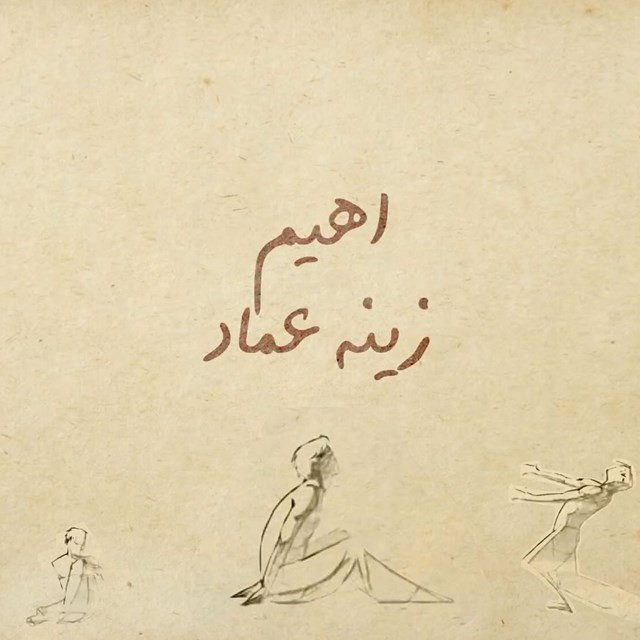 اهيم
زينه عماد